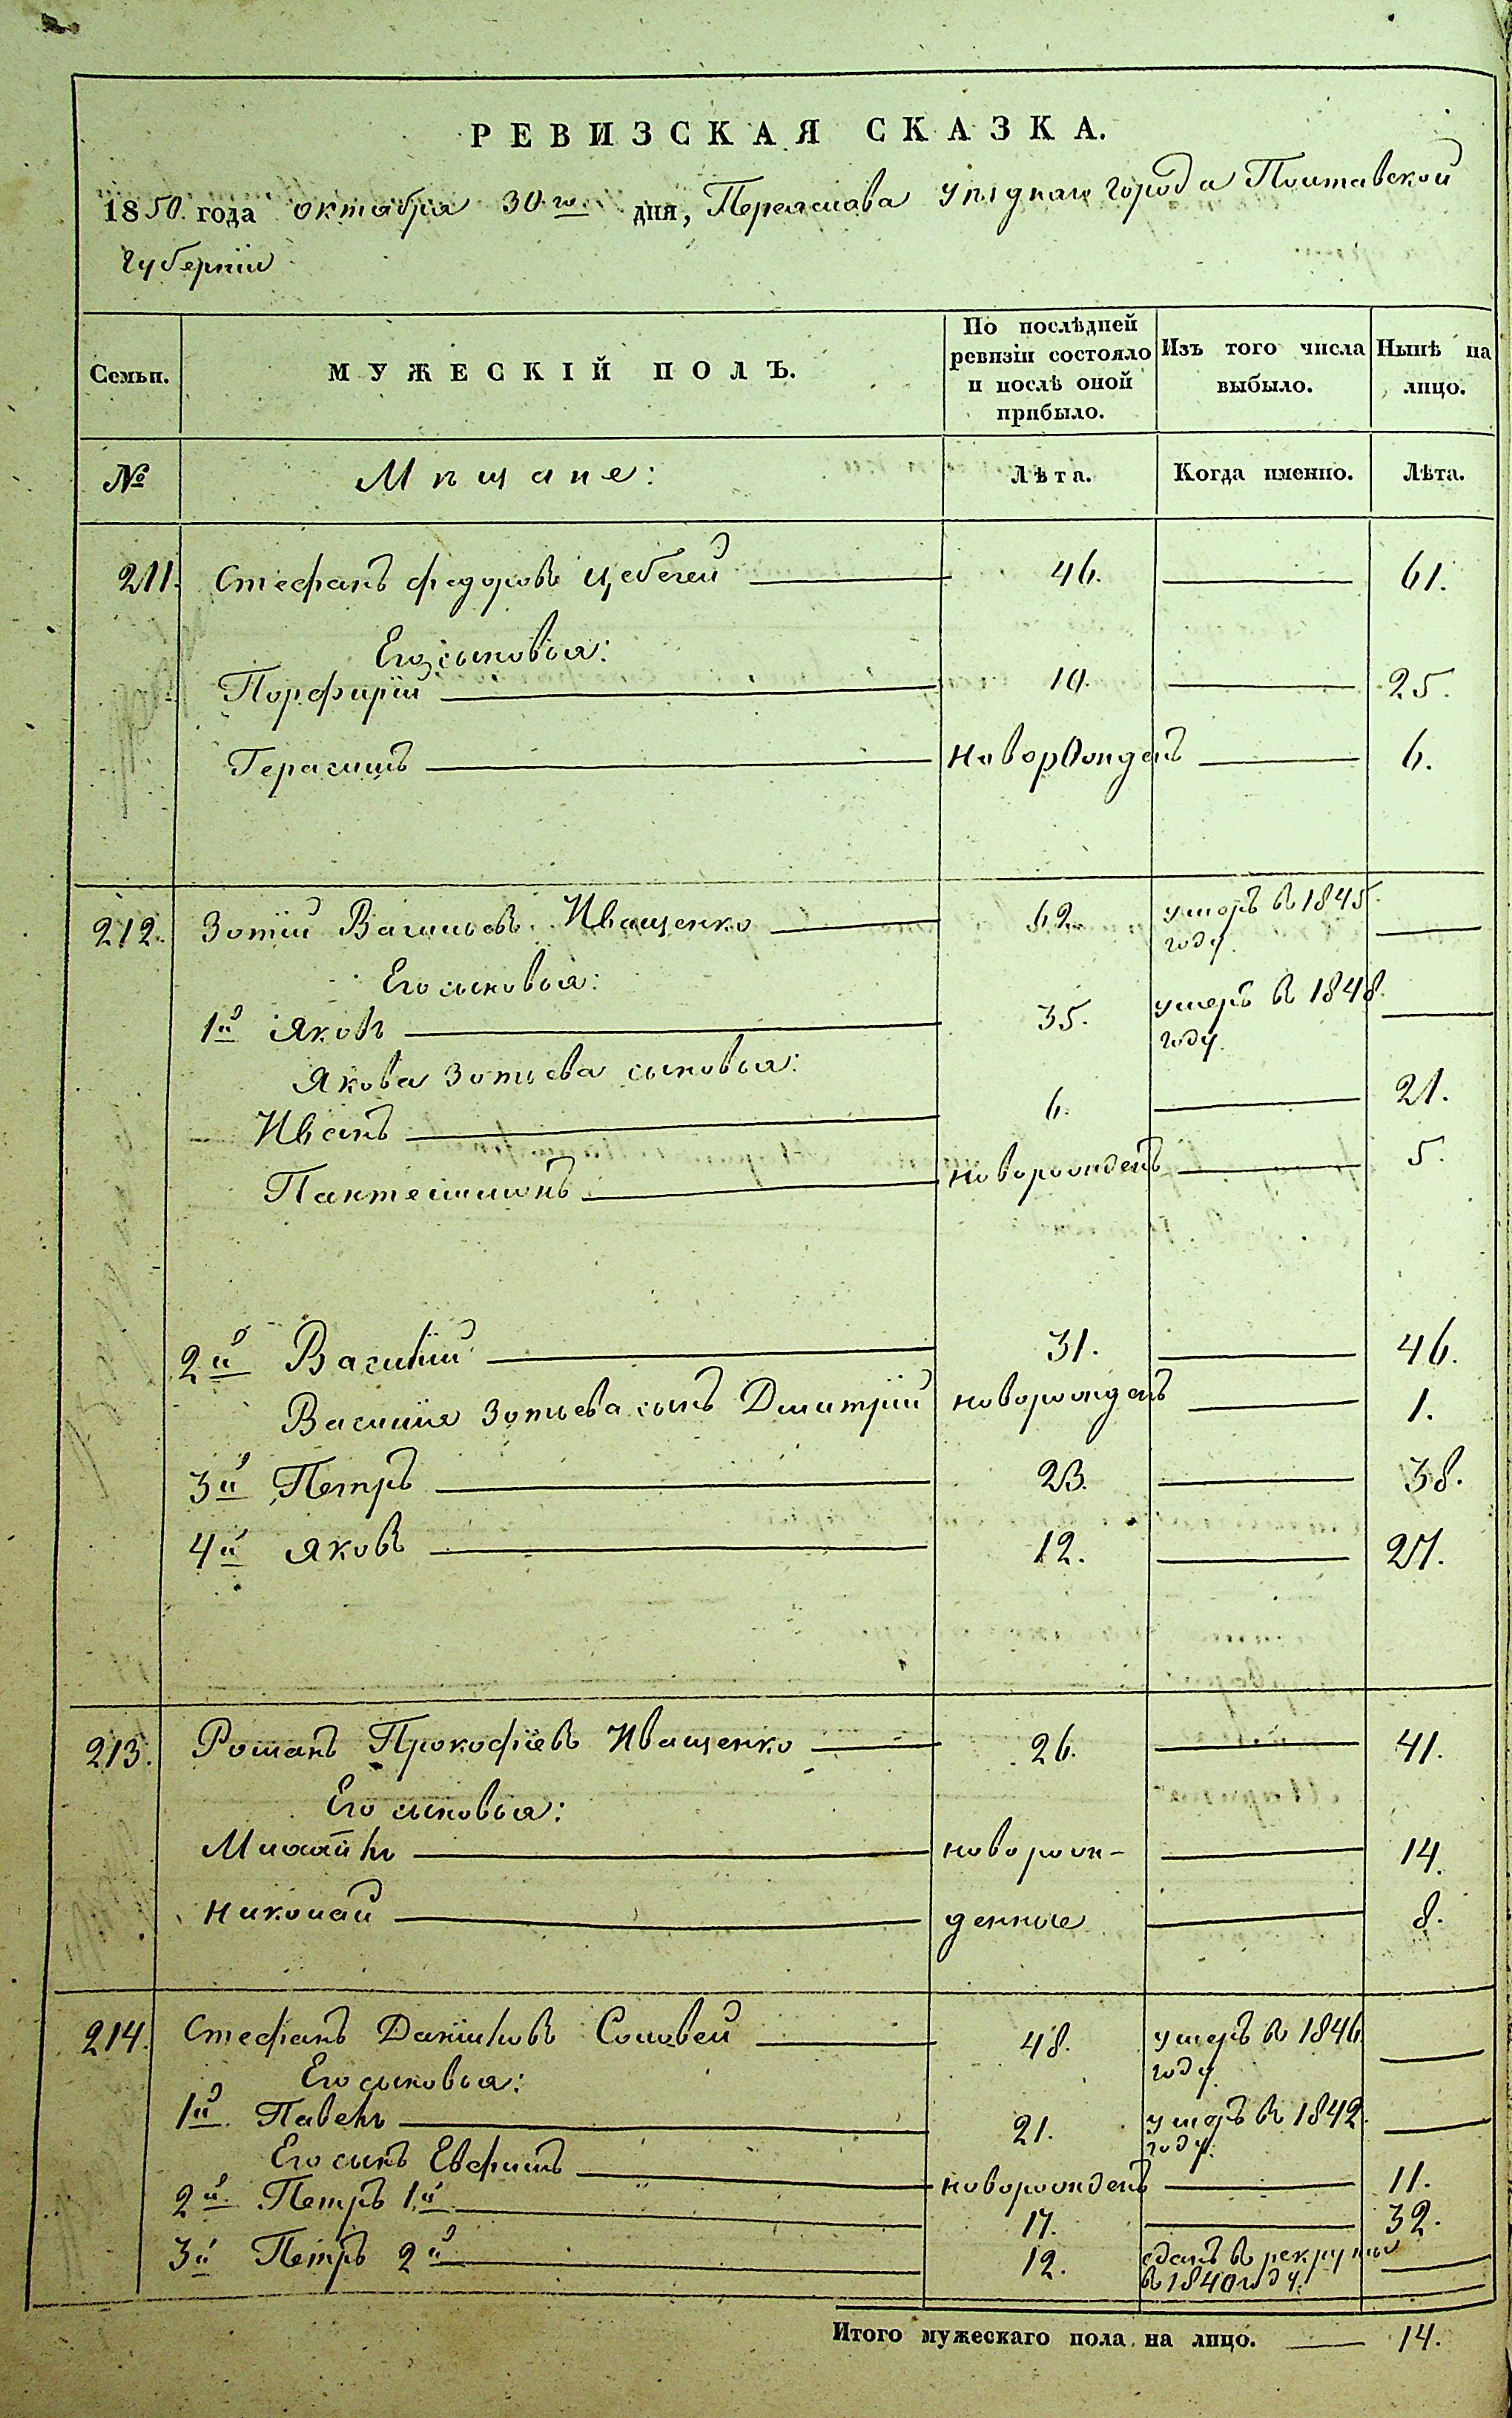 РЕВИЗСКАЯ СКАЗКА.
1850. года октября 30го дня, Переяслава уѣзднаго города Полтавской
губерніи
Семьи.
МУЖЕСКІЙ ПОЛЪ.
По послѣдней ревизіи состояло и послѣ оной прибыло.
Изъ того числа выбыло.
Ныпѣ на лицо.
№ Мѣщане: Лѣта. Когда именно. Лѣта.
211. Стефанъ Федоровъ Цебегей — 46. — 61.
Его сыновья:
Порфирій — 10. — 25.
Герасимъ — Новорожденъ — 6.
212. Зотій Васильевъ Иващенко — 62. умеръ въ 1845. году. —
Его сыновья:
1й Яковъ — 35. умеръ въ 1848. году. —
Якова Зотьева сыновья:
Иванъ — 6. — 21.
Пантелимонъ — новорожденъ — 5.
2й Василій — 31. — 46.
Василія Зотьева сынъ Дмитрій новорожденъ — 1.
3й Петръ — 23. — 38.
4й Яковъ — 12. — 27.
213. Романъ Прокофіевъ Иващенко — 26. — 41.
Его сыновья:
Михайлъ — новорож- — 14.
Николай — денные — 8.
214. Стефанъ Даніиловъ Соловей — 48. умеръ въ 1846 году. —
Его сыновья:
1й Павелъ — 21. умеръ въ 1842. году. —
Его сынъ Евфимъ — новорожденъ — 11.
2й Петръ 1й — 17. — 32.
3й Петръ 2й — 12. сданъ въ рекруты въ 1840 году. —
Итого мужескаго пола на лицо. — 14.